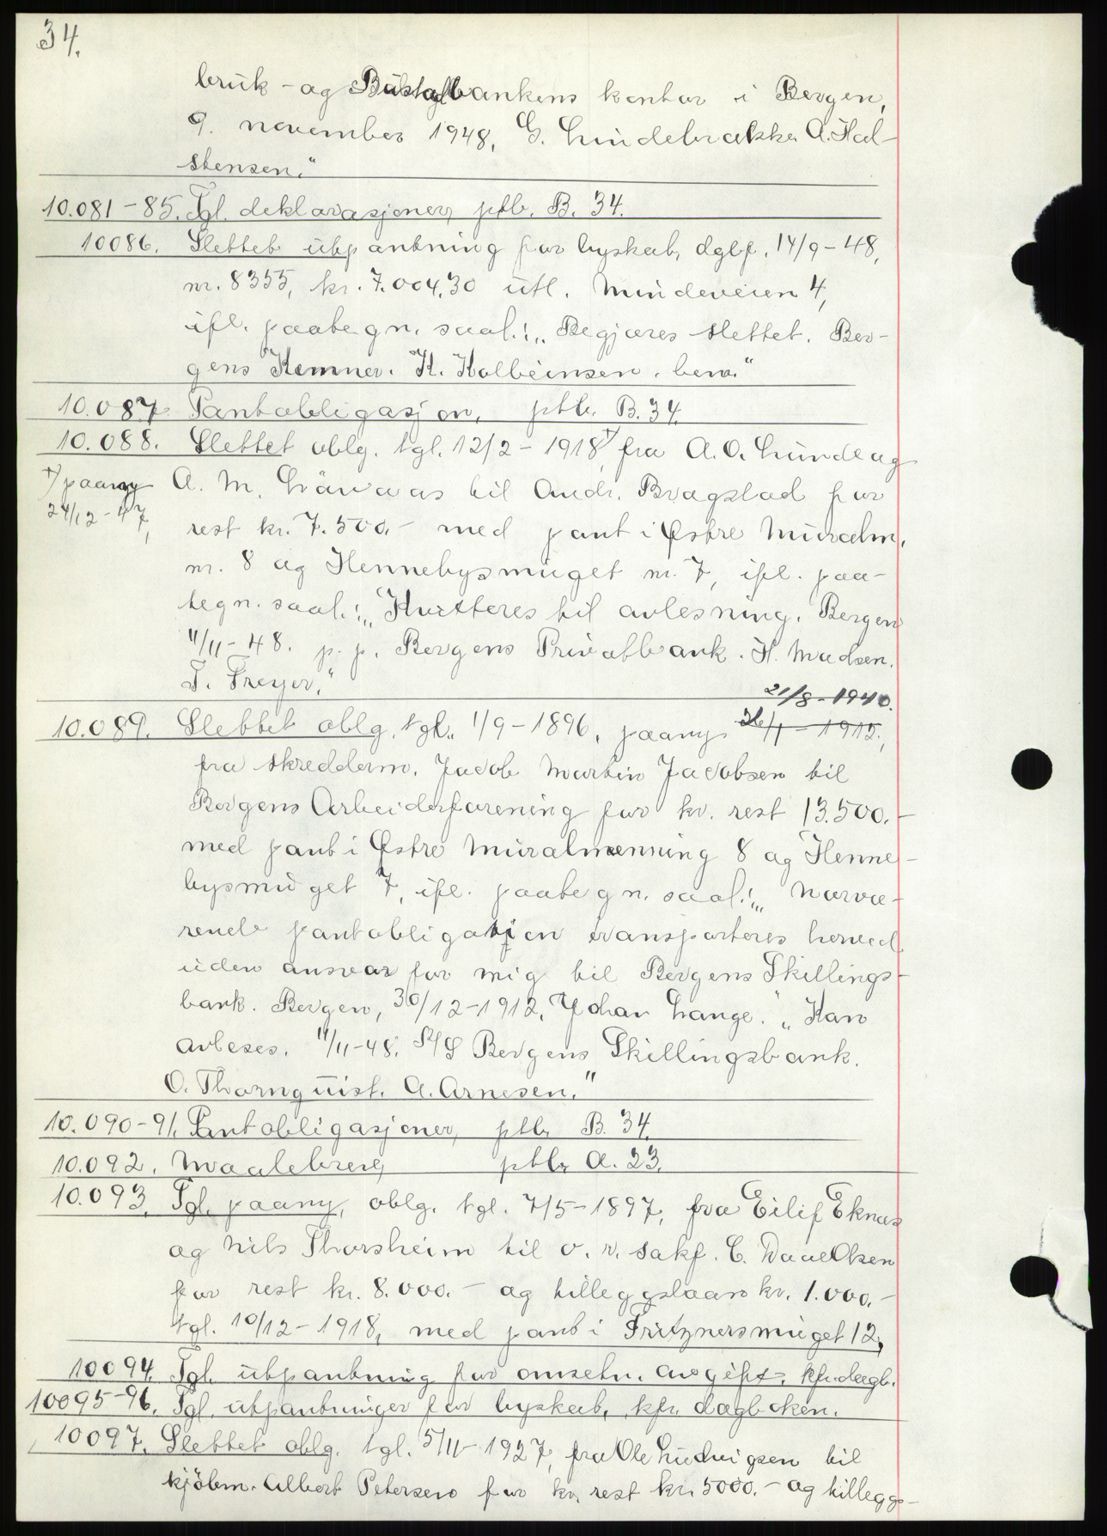 34.
bruk- og Bustadbankens kontor i Bergen,
9. november 1948, G. Lindebrække A. Hal-
stensen."
10.081-85. Tgl. deklarasjoner, ptb. B. 34.
10086. Slettet utpantning for byskatt, dglf. 14/9-48,
nr. 8355, kr. 7.004,30 utl. Mindeveien 4,
ifl. paategn. saal.: „Begjæres slettet. Ber-
gens Kemner. K. Kolbeinsen. bem."
10.087 Pantobligasjon, ptb. B. 34.
10.088. Slettet oblg. tgl. 12/2-1918, fra A. O. Lunde og
paany A. M. Låvaas til Andr. Bragstad for
24/12-47, rest kr. 7.500.- med pant i Østre Muralm.
nr. 8 og Hennebysmuget nr. 7, ifl. paa-
tegn. saal.: „Kvitteres til avlesning. Bergen
4/11-48. p. p. Bergens Privatbank. H. Madsen.
T. Freyer."
21/8-1940.
10.089. Slettet oblg. tgl. 1/9-1896, paany 26/1-1915,
fra skredderm. Jacob Martin Jacobsen til
Bergens Arbeiderforening for kr. rest 13.500.-
med pant i Østre Muralmenning 8 og Henne-
bysmuget 7, ifl. paategn. saal.: „Nærvæ-
rende pantobligation transporteres herved
uden ansvar for mig til Bergens Skillings-
bank. Bergen, 30/12-1912, Johan Lange." „Kan
avleses. 11/11-48. A/S Bergens Skillingsbank.
O. Thornquist. A. Arnesen."
10.090-91. Pantobligasjoner, ptb. B. 34.
10.092. Maalebrev, ptb. A. 23.
10.093. Tgl. paany, oblg. tgl. 7/5-1897, fra Eilif Eknas
og Nils Thorsheim til o. r. sakf. C. Daae Olsen
for rest kr. 8.000.- og tilleggslaan kr. 1.000.-
tgl. 10/12-1918, med pant i Fritznersmuget 12,
10094. Tgl. utpantning for omsetn. avgift, kfr. dagb.
10095-96. Tgl. utpantninger for byskatt, kfr. dagboken.
10097. Slettet oblg. tgl. 5/11-1927, fra Ole Ludvigsen til
kjöbm. Albert Petersen for kr. rest kr. 5000.- og tilleggs-